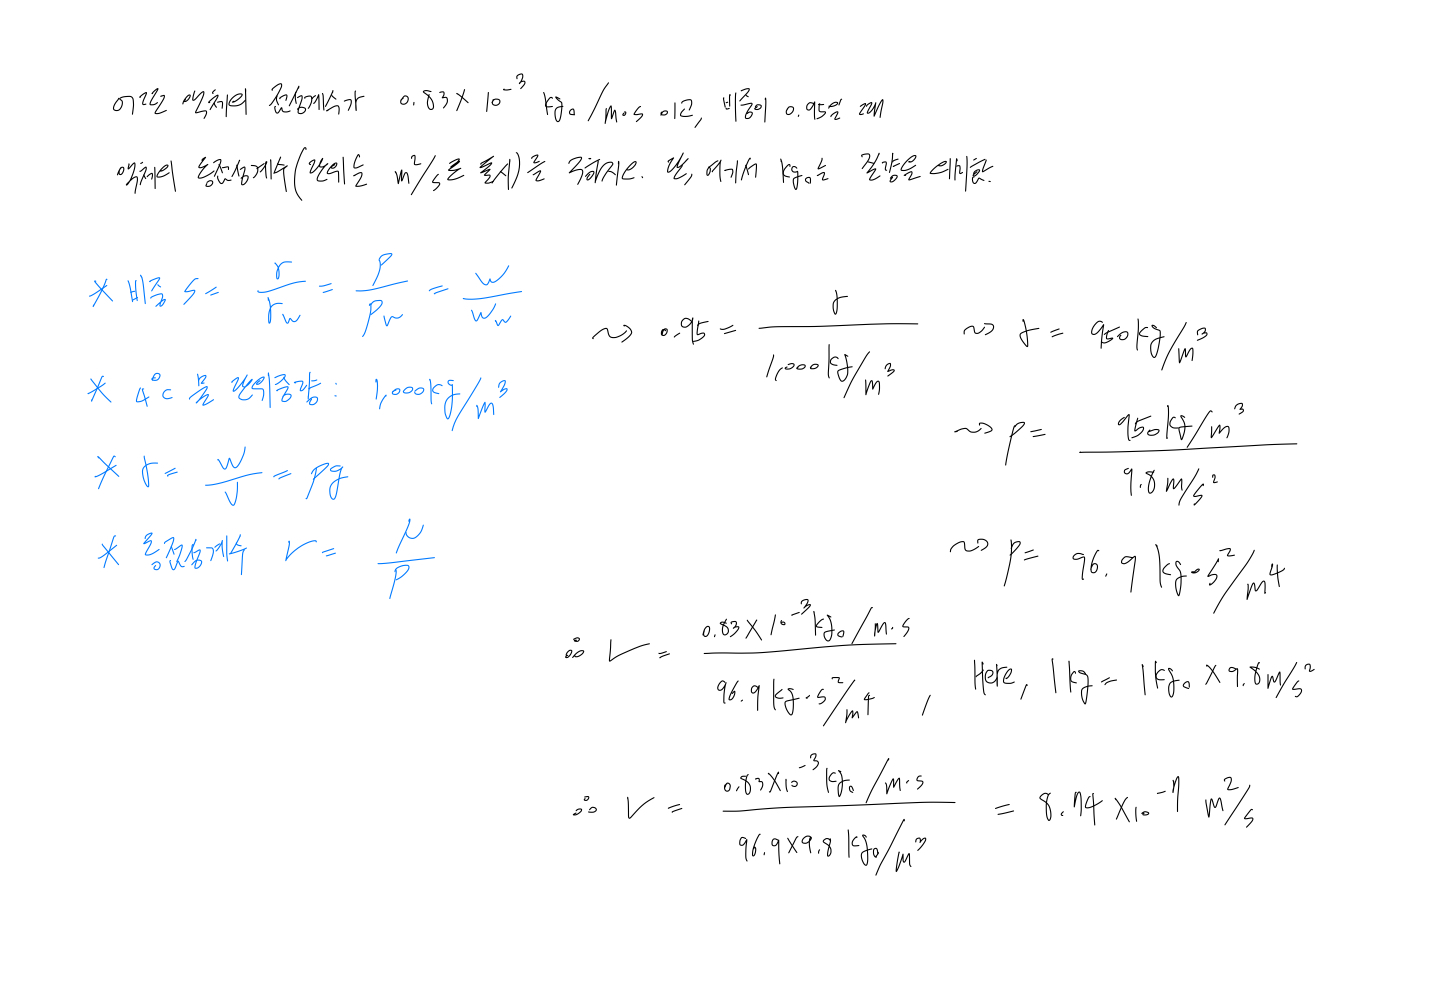 어떤 액체의 점성계수가 0.83×10⁻³ kg₀/m·s 이고, 비중이 0.95일 때
액체의 동점성계수(단위는 m²/s로 표시)를 구하시오. 단, 여기서 kg₀는 질량을 의미함.
* 비중 S = γ/γw = ρ/ρw = W/Ww
* 4°C 물 단위중량 : 1,000kg/m³
* γ = W/V = ρg
* 동점성계수 ν = μ/ρ
~> 0.95 = γ/1,000kg/m³ ~> γ = 950kg/m³
~> ρ = 950kg/m³ / 9.8m/s²
~> ρ = 96.9 kg·s²/m4
∴ ν = 0.83×10⁻³kg₀/m·s / 96.9kg·s²/m4 , Here, 1kg = 1kg₀ × 9.8m/s²
∴ ν = 0.83×10⁻³kg₀/m·s / 96.9×9.8 kg₀/m³ = 8.74×10⁻⁷ m²/s